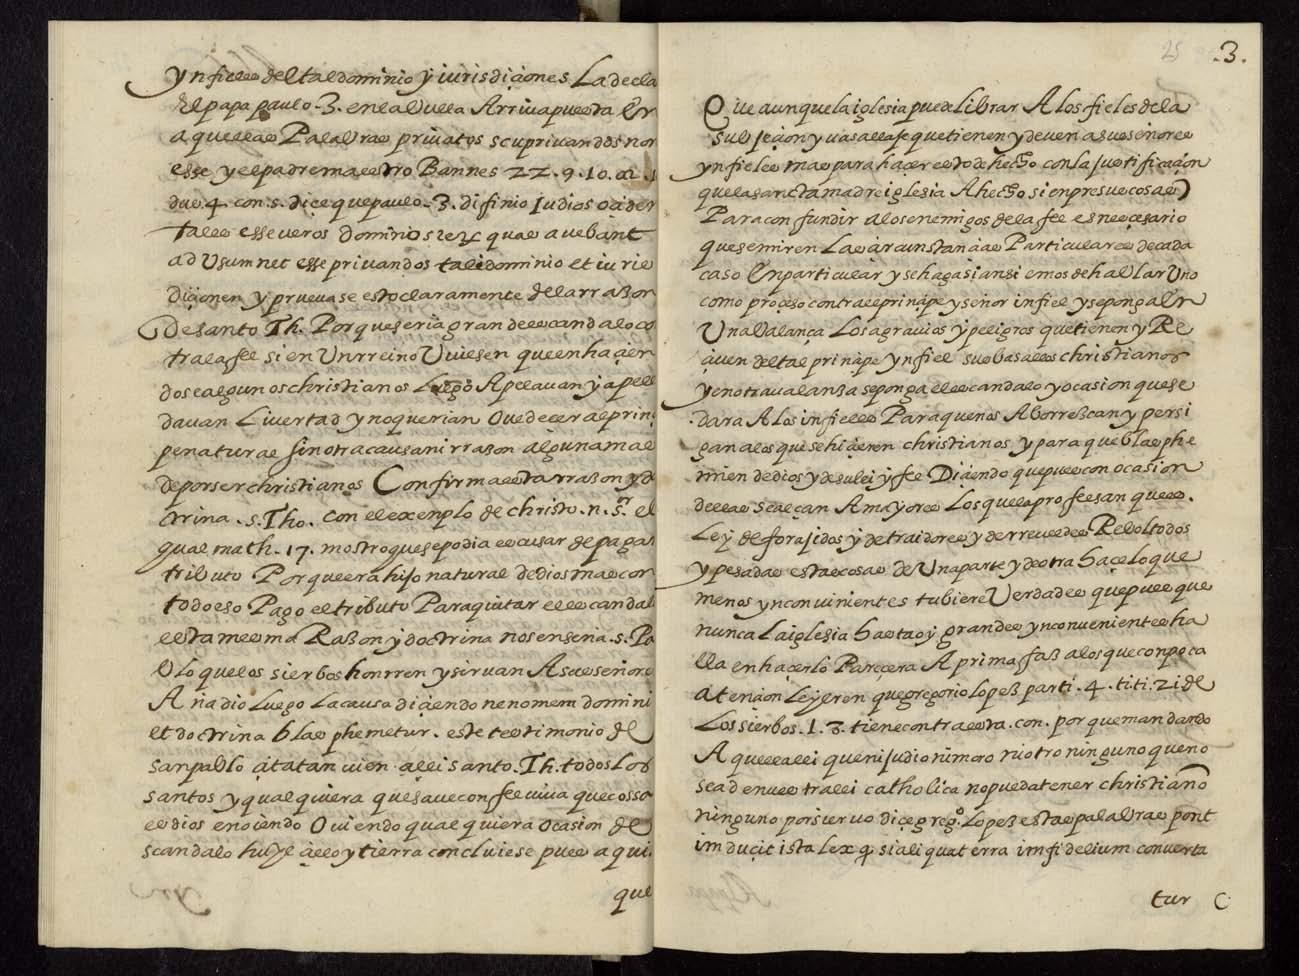 ynfieles del tal dominio y iurisdiçiones La decla
El papa paulo -3. en la bulla Arriva puesta En
aquellas Palabras privatos seu privandos non
esse y el padre maestro Bannes 22. q. 10. a.
du. 4 con. s. diçe que paulo -3. difinio Iudios oçiden
tales esse veros dominos rerum quas avebant
ad Usum nec esse privandos tali dominio et iuris
diçionem y pruevase esto claramente del arrazon
De santo Th. Porque seria grande escandalo con
tra la fee si en Un rreino Uviesen que en haçien
dose algunos christianos Luego Apelavan y apelli
davan Livertad y no querian Ovedecer al prinçi
pe natural sin otra causa ni rrason alguna mas
de por ser christianos Confirma esta rrason y do
ctrina .s. Tho. con el exenplo de christo .n. s.r el
qual math. 17. mostro que se podia escusar de pagar
tributo Porque era hijo natural de dios mas con
todo eso Pago el tributo Para quitar el escandalo
esta mesma Razon y doctrina nos enseña .s. Pa
blo que los sierbos honrren y sirvan A sus señores
Añadio Luego La causa diçiendo ne nomem domini
et doctrina blasphemetur. este testimonio de
san pablo açita tan vien alli santo .Th. todos Los
santos y qualquiera que save con fee viva que cossa
es dios enoiendo O viendo qualquiera ocasion de
scandalo huye çielo y tierra concluiese pues aqui.
que
25 .3.
Que aunque la iglesia puede librar A los fieles de la
subjeçion y vasallaje que tienen y deven a sus señores
ynfieles mas para haçer esto de hecho con la justificaçion
que la sancta madre iglesia A hecho sienpre sus cosas
Para confundir a los enemigos de la fee es neçesario
que se miren Las çircunstançias Particulares de cada
caso En particular y se haga si ansi emos de hablar Uno
como proçeso contra el prinçipe y señor infiel y se ponga En
Una balança Los agravios y peligros que tienen y Re
çiven del tal prinçipe ynfiel sus basallos christianos
y en otra valanza se ponga el escandalo y ocasion que se
dara A los infieles Para que nos Aborrezcan y persi
gan a los que se hiçieren christianos y para que blasphe
men de dios y de su lei y fee Diçiendo que pues con ocasion
della se alçan A mayores Los que la profeesan que es
Ley de forajidos y de traidores y de rrevueltos Reboltodos
y pesadas estas cosas de Una parte y de otra haçe lo que
menos ynconvinientes tubiere Verdad es que pues que
nunca La iglesia hasta oy grandes ynconvenientes ha
lla en haçerlo Pareçera A prima faz a los que con poca
atençion Leyeron que gregorio lopez parti. 4. titi. 21 de
Los sierbos. l. 3. tiene contra esta .con. porque mandando
Aquella lei que ni judio ni moro ni otro ninguno que no
sea de nuestra lei catholica no pueda tener christiano
ninguno por siervo diçe greg.o Lopez estas palabras pont
induçit ista lex q. si aliqua terra imfidelium converta
tur C